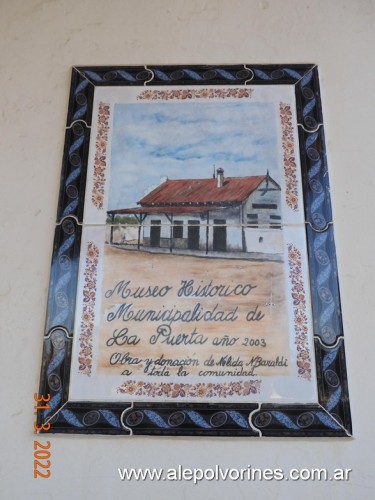 Museo Historico
Municipalidad de
La Puerta año 2003
Obra y donación de Nelida N. Baraldi
a toda la comunidad
31-3-2022
www.alepolvorines.com.ar